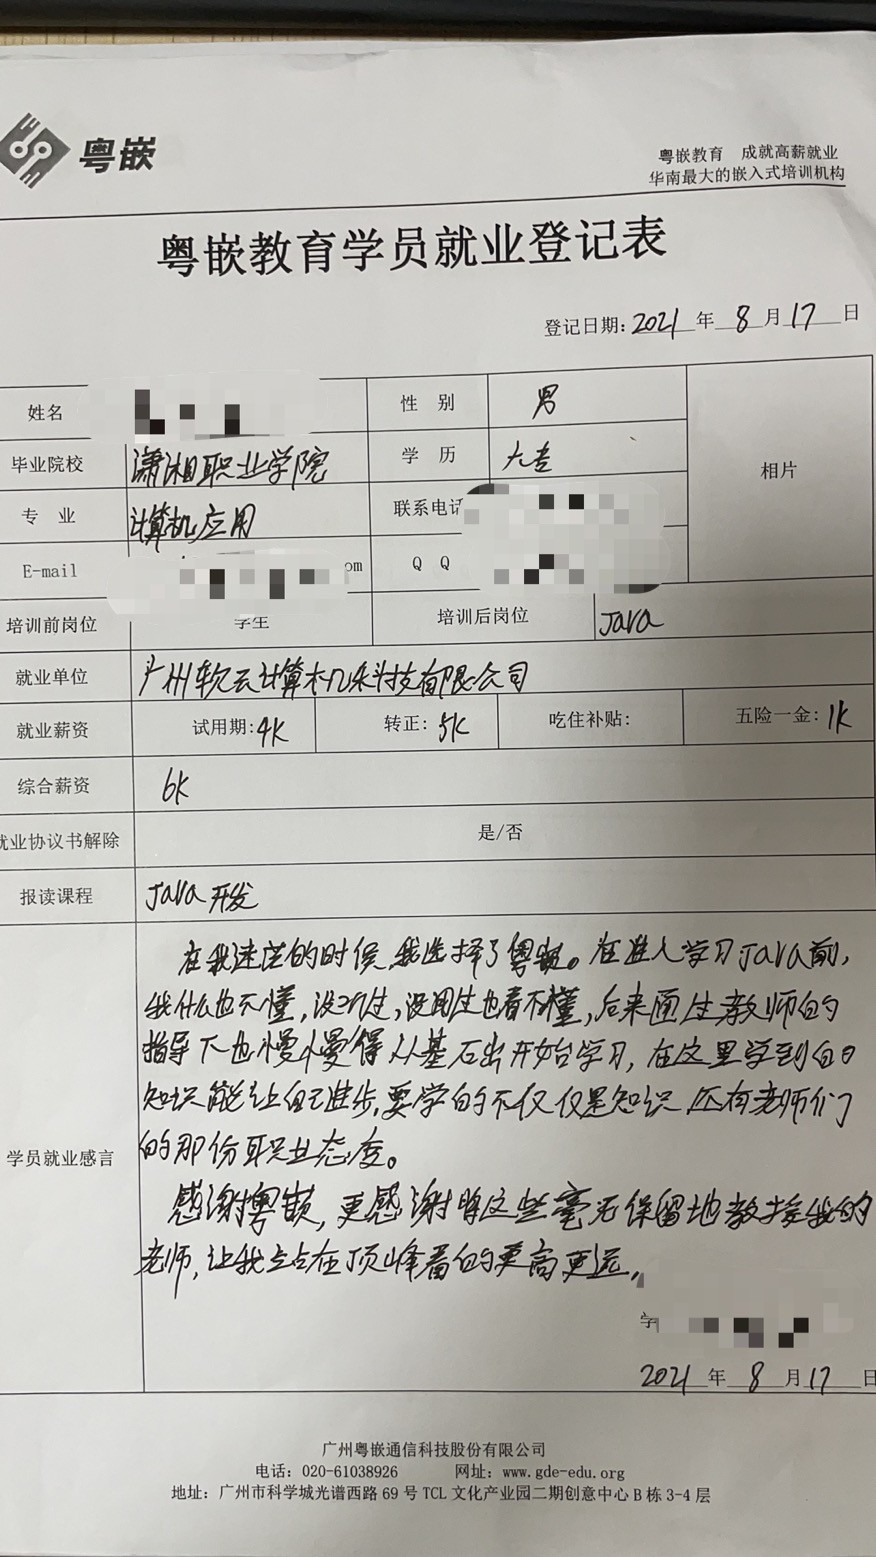 粤嵌
粤嵌教育 成就高薪就业
华南最大的嵌入式培训机构
粤嵌教育学员就业登记表
登记日期:2021年8月17日
姓名 性 别 男
毕业院校 潇湘职业学院 学 历 大专 相片
专 业 计算机应用 联系电话
E-mail om Q Q
培训前岗位 学生 培训后岗位 Java
就业单位 广州软云计算机科技有限公司
就业薪资 试用期:4K 转正:5K 吃住补贴: 五险一金:1K
综合薪资 6K
就业协议书解除 是/否
报读课程 Java开发
学员就业感言
在我迷茫的时候,我选择了粤嵌。在进入学习Java前,
我什么也不懂,没 过,没 过也看不懂,后来通过教师的
指导下也慢慢得从基础开始学习,在这里学到的
知识能让自己进步,要学的不仅仅是知识 还有老师们
的那份职业态度。
感谢粤嵌,更感谢将这些毫无保留地教授我的
老师,让我站在顶峰看的更高更远,
学
2021年8月17日
广州粤嵌通信科技股份有限公司
电话:020-61038926 网址:www.gde-edu.org
地址:广州市科学城光谱西路69号TCL文化产业园二期创意中心B栋3-4层